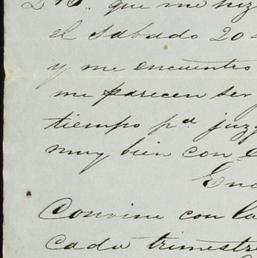 D. N. que me hiz
el Sabado 20 d
y me encuentro
me parecen ser
tiempo pa. juzg
muy bien con C
Eno
Convine con la
cada trimestre